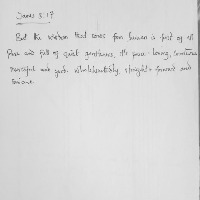 James 3:17
But the wisdom that comes from heaven is first of all
Pure and full of quiet gentleness, it's peace-loving, courteous
merciful and good. wholeheartedly, straight forward and
Sincere.